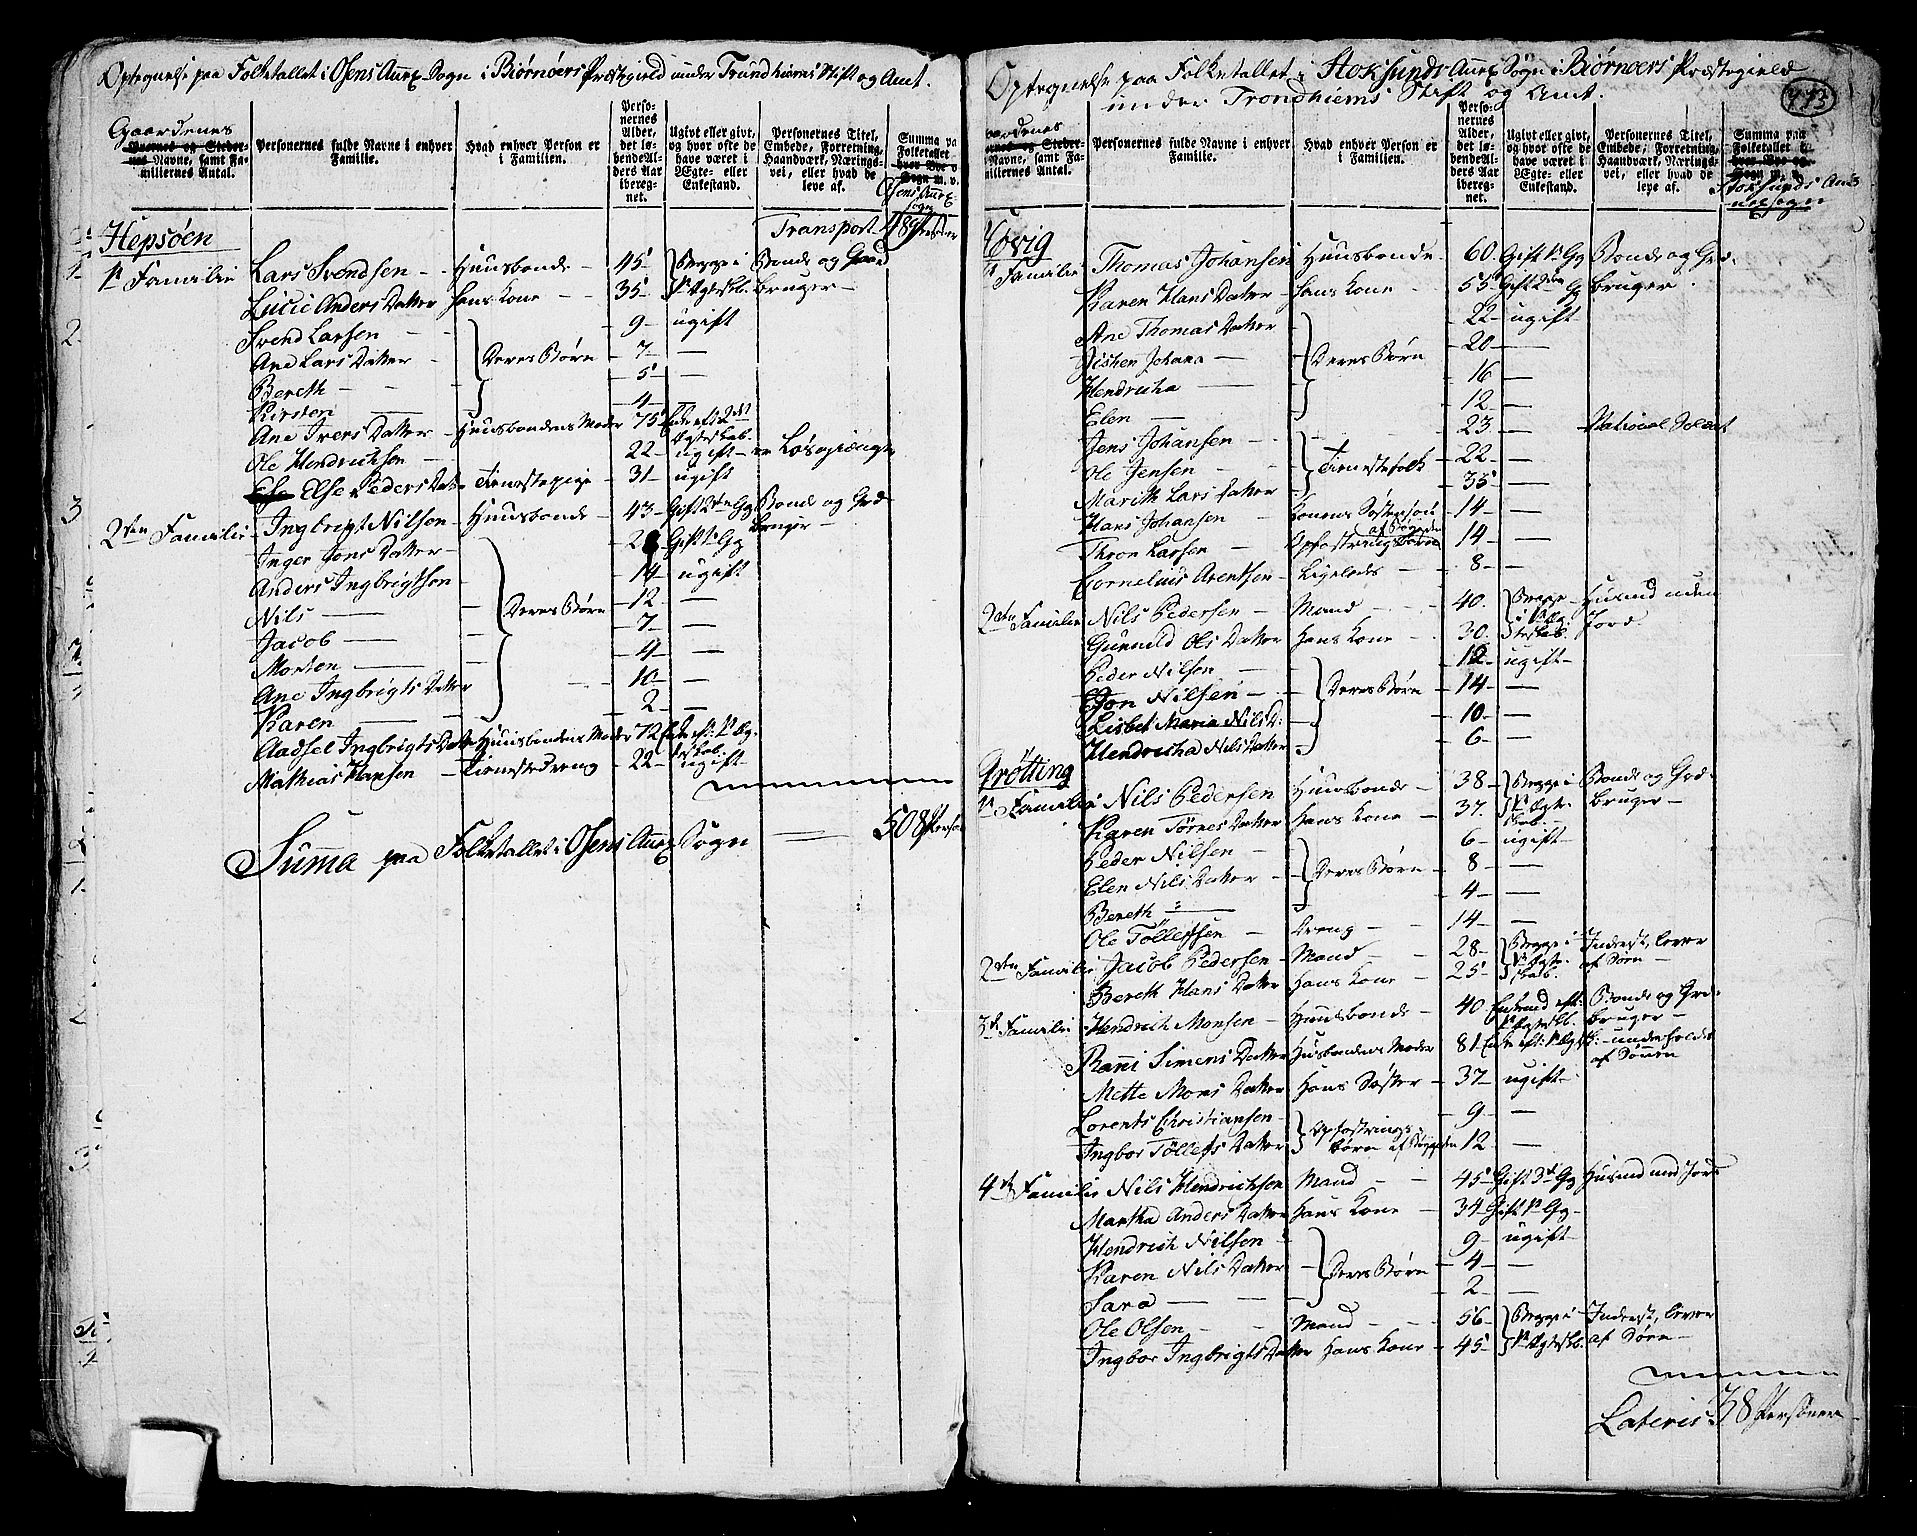 Optegnelse paa Folketallet i Osens Anex Sogn i Biørnøers Præstegield under Trundhiems Stift og Amt.
Gaardenes
Byernes og Stedernes Navne, samt Familiernes Antal.
Personernes fulde Navne i enhver Familie.
Hvad enhver Person er i Familien.
Personernes Alder, det løbende Alders Aar iberegnet.
Ugivt eller givt, og hvor ofte de have været i Ægte- eller Enkestand.
Personernes Titel, Embede, Forretning, Haandværk, Næringsvei, eller hvad de leve af.
Summa paa Folketallet
Osens Anex Sogn
Transport
Hepsøen
1ste Familie Lars Svendsen – Huusbonde – 45 Begge i Bonde og Gaard
Lucie Anders Datter hans Kone – 35 1ste Ægtesk. bruger –
Svend Larsen – 9 – ugift
Ane Lars Datter – Deres Børn – 7 – —
Bereth — 5 – —
Kirsten — 4 – —
Ane Ivers Datter – Huusbondens Moder 75 Enke efter 2det Ægteskab.
Ole Hendrichsen – 22 – ugift – er Løsgiænger
Else Peders Datter Tienestepige – 31 – ugift
2den Familie – Ingbrigt Nilson – Huusbonde – 43 – Gift 2den Gg Bonde og Grd
bruger –
Inger Jons Datter – Gift 1ste Gg
Anders Ingbrigtson – 14 – ugift
Nils — Deres Børn – 12 – —
Jacob — 7 – —
Morten — 4 – —
Ane Ingbrigts Datter 10 – —
Karen — 2 – —
Aadsel Ingbrigts Datter Huusbondens Moder 72 Enke eft: 1ste Æg-
teskab.
Mathias Hansen – Tienestedreng – 22 – ugift
Suma paa Folketallet i Osens Anex Sogn — 508 Person
Optegnelse paa Folketallet i Stoksunds Anex Sogn i Biørnøers Præstegield
under Trondhiems Stift og Amt.
773
Gaardenes
Byernes og Stedernes Navne, samt Familiernes Antal.
Personernes fulde Navne i enhver Familie.
Hvad enhver Person er i Familien.
Personernes Alder, det løbende Alders Aar iberegnet.
Ugivt eller givt, og hvor ofte de have været i Ægte- eller Enkestand.
Personernes Titel, Embede, Forretning, Haandværk, Næringsvei, eller hvad de leve af.
Summa paa Folketallet
Stoksunds Annexsogn
Hovig
1ste Familie Thomas Johansen Huusbonde – 60. Gift 1ste Gg Bonde og Grd-
Karen Hans Datter – hans Kone – 55 Gift 2den Gg bruger.
Ane Thomas Datter 22 – ugift –
Johana — Deres Børn 20 – —
Hendricha — 16 —
Elen — 12 – —
Jens Johansen – 23 – — National Soldat
Ole Jensen – Tienestefolk – 22 – —
Marith Lars Datter 35 – —
Hans Johansen – Konens Søstersøn 14 – —
Thron Larsen – Opfostringsbørn af Bøgden 14 – —
Cornelius Arentsen – Ligeledes – 8 – —
2den Familie Nils Pedersen – Mand – 40. Begge i 1ste Ægteskab. Husmd uden
Gunnild Ols Datter hans Kone – 30. Jord
Peder Nilsen – 12 ugift –
Jon Nilsen – Deres Børn – 14 – —
Lisbet Maria Nils D: 10 – —
Hendricha Nils Datter – 6 – —
Grøtting
1ste Familie Nils Pedersen Huusbonde – 38 – Begge i Bonde og Grd-
Karen Tørres Datter hans Kone – 37. 1ste Ægteskab – bruger –
Peder Nilsen – 6 – ugift –
Elen Nils Datter – Deres Børn – 8 – —
Bereth — 4 – —
Ole Tollefsen – Dreng – 14 – —
2den Familie Jacob Pedersen – Mand – 28 – Begge i Inderst, lever
Bereth Hans Datter hans Kone – 25 1ste Ægteskab. af Søen –
3de Familie – Hendrich Monsen – Huusbonde – 40 Enkemd eft: Bonde og Grd-
1ste Ægteskb. bruger –
Rami Simens Datter Husbondens Moder 81. Enke eft: 1ste Ægtsk: – underholdes
af Sønnen
Mette Mons Datter hans Søster – 37 – ugift –
Lorents Christiansen – Opfostrings- 9 – —
Ingbor Tollefs Datter børn af Bøygden 12 —
4de Familie Nils Hendrichsen Mand – 45 Gift 3de Gg Husmd med Jord
Martha Anders Datter hans Kone – 34 – Gift 1ste Gg –
Hendrich Nilsen – 9 – ugift –
Karen Nils Datter – Deres Børn – 4 – —
Sara — 2 – —
Ole Olsen – Mand – 56 – Begge i Inderst, lever
Ingbor Ingbrigts Datter hans Kone – 45 1ste Ægteskb. af Søen –
Lateris 38 Personer